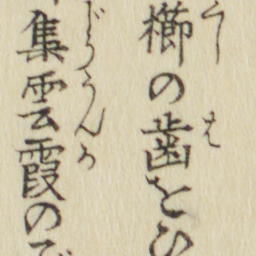 櫛の歯をひ
集雲霞のご